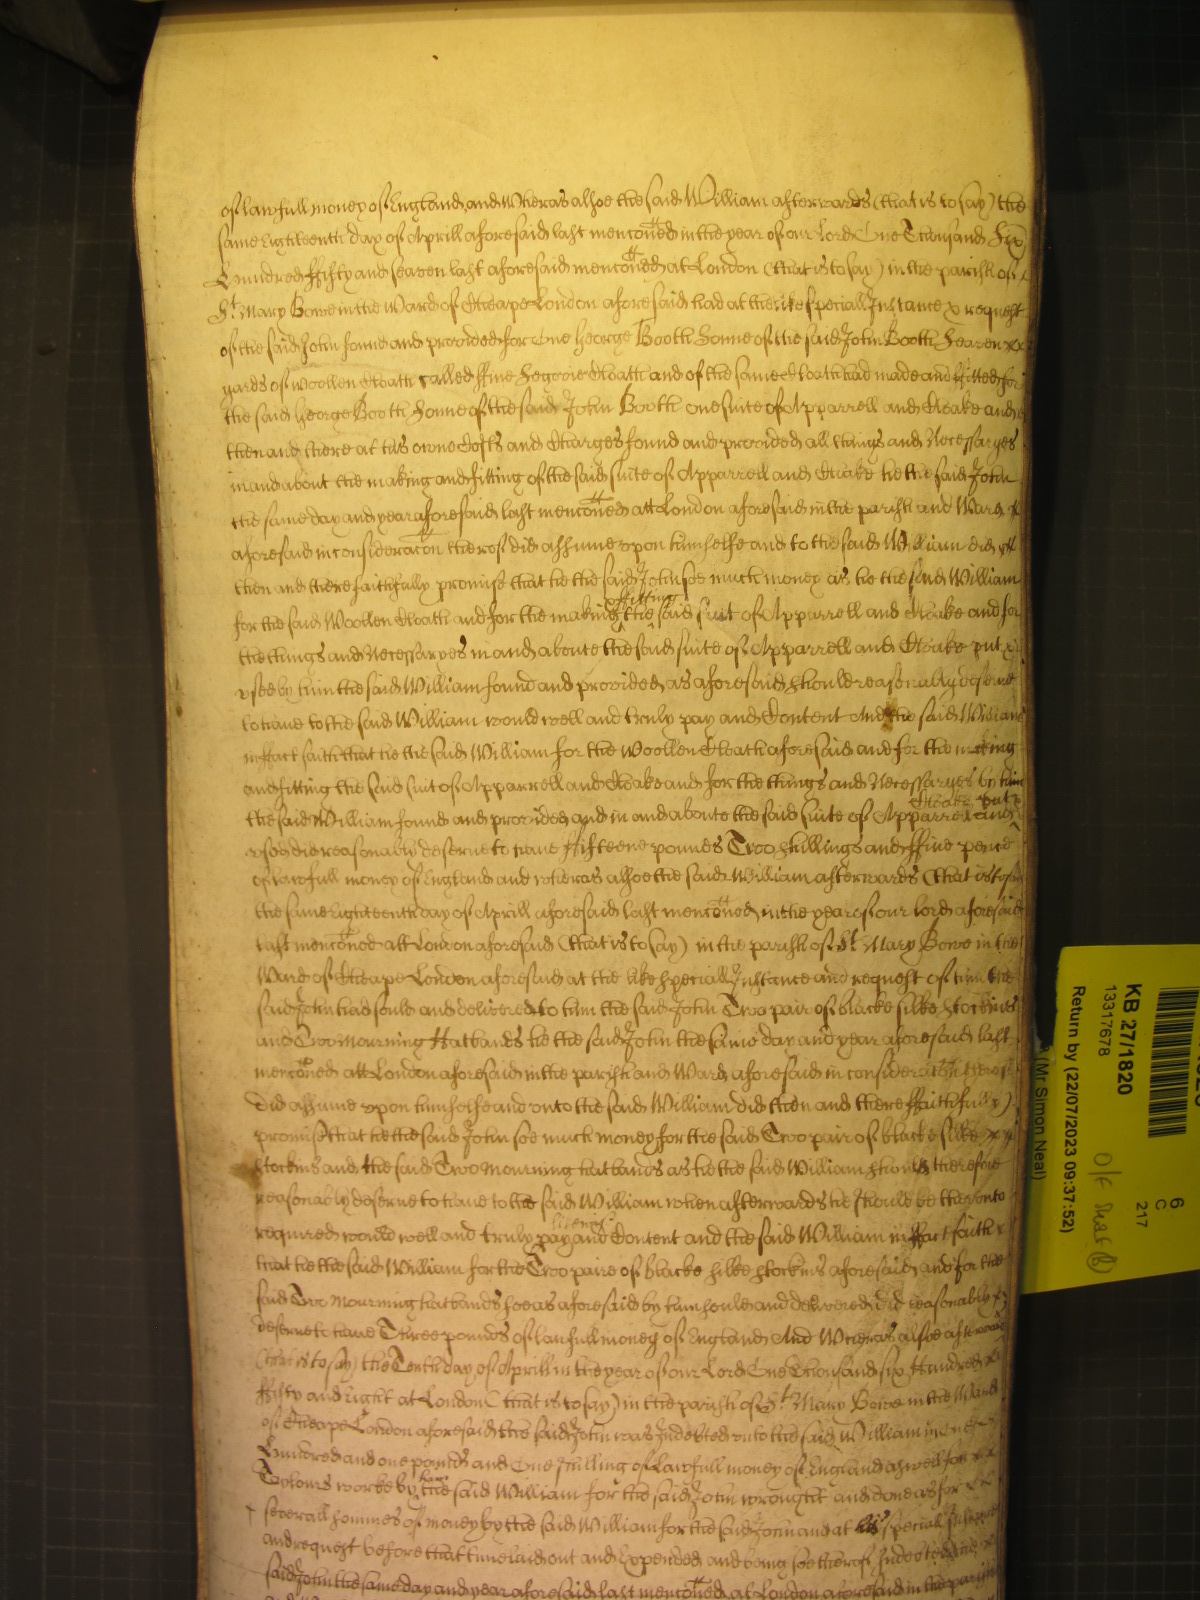 of lawfull money of England and Whereas alsoe the said William afterwards (that is to say) the
same Eighteenth day of Aprill aforesaid last menconed in the year of our Lord One Thousand Six
Hundred Fifty and seaven last aforesaid menconed at London (that is to say) in the parish of
St Mary Bowe in the Ward of Cheape London aforesaid had at the like speciall Instance & request
of the said John found and provided for One George Booth Sonne of the said John Booth Seaven
yards of woollen Cloath called ffine Segovie Cloath and of the same Cloath had made and fitted for
the said George Booth Sonne of the said John Booth one suite of Apparrell and Cloake and
then and there at his owne Costs and Charges found and provided all things and Necessaryes
in and about the making and fitting of the said suite of Apparrell and Cloake he the said John
the same day and year aforesaid last menconed att London aforesaid in the parish and Ward
aforesaid in consideracon thereof did assume upon himselfe and to the said William did
then and there faithfully promise that he the said John soe much money as he the said William
for the said Woollen Cloath and for the making & fitting the said suit of Apparrell and Cloake and for
the things and Necessaryes in and aboute the said suite of Apparrell and Cloake put &
used by him the said William found and provided as aforesaid should reasonably deserve
to have to the said William would well and truly pay and Content And the said William
in ffact saith that he the said William for the Woollen Cloath aforesaid and for the making
and fitting the said suit of Apparrell and Cloake and for the things and Necessaryes by him
the said William found and provided and in and aboute the said suite of Apparrell and Cloake put &
used did reasonably deserve to have ffifteene pounds Two shillings and ffive pence
of lawfull money of England and whereas alsoe the said William afterwards (that is to say)
the same Eighteenth day of Aprill aforesaid last menconed in the year of our lord aforesaid
last menconed att London aforesaid (that is to say) in the parish of St Mary Bowe in the
Ward of Cheape London aforesaid at the like speciall Instance and request of him the
said John had sould and delivered to him the said John Two pair of blacke silke stockins
and Two mourning Hatbands he the said John the same day and year aforesaid last
menconed att London aforesaid in the parish and Ward aforesaid in consideracon thereof
did assume upon himselfe and unto the said William did then and there ffaithfully
promise that he the said John soe much money for the said Two pair of blacke silke
stockins and the said Two mourning hatbands as he the said William should therefore
reasonably deserve to have to the said William when afterwards he should be thereunto
required would well and truly pay and Content and the said William in ffact saith
that he the said William for the Two paire of blacke silke stockins aforesaid and for the
said Two mourning hatbands soe as aforesaid by him sould and delivered did reasonably
deserve to have Three pounds of lawfull money of England And Whereas alsoe afterwards
(that is to say) the Tenth day of Aprill in the year of our Lord One Thousand six Hundred
ffifty and eight at London (that is to say) in the parish of St Mary Bowe in the Ward
of Cheape London aforesaid the said John was Indebted unto the said William in one
Hundred and one pounds and One shilling of lawfull money of England aswell for
Taylours worke by him the said William for the said John wrought and done as for
severall sommes of money by the said William for the said John and at his speciall Instance
and request before that time laid out and Expended and being soe thereof Indebted he the
said John the same day and year aforesaid last menconed at London aforesaid in the parish
6
C
217
KB 27/1820
13317678
Return by (22/07/2023 09:37:52)
(Mr Simon Neal)